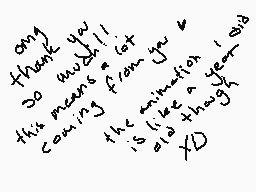 omg
thank you
so much!!
this means a lot
coming from you ♥
the animation i did
is like a year
old though
XD